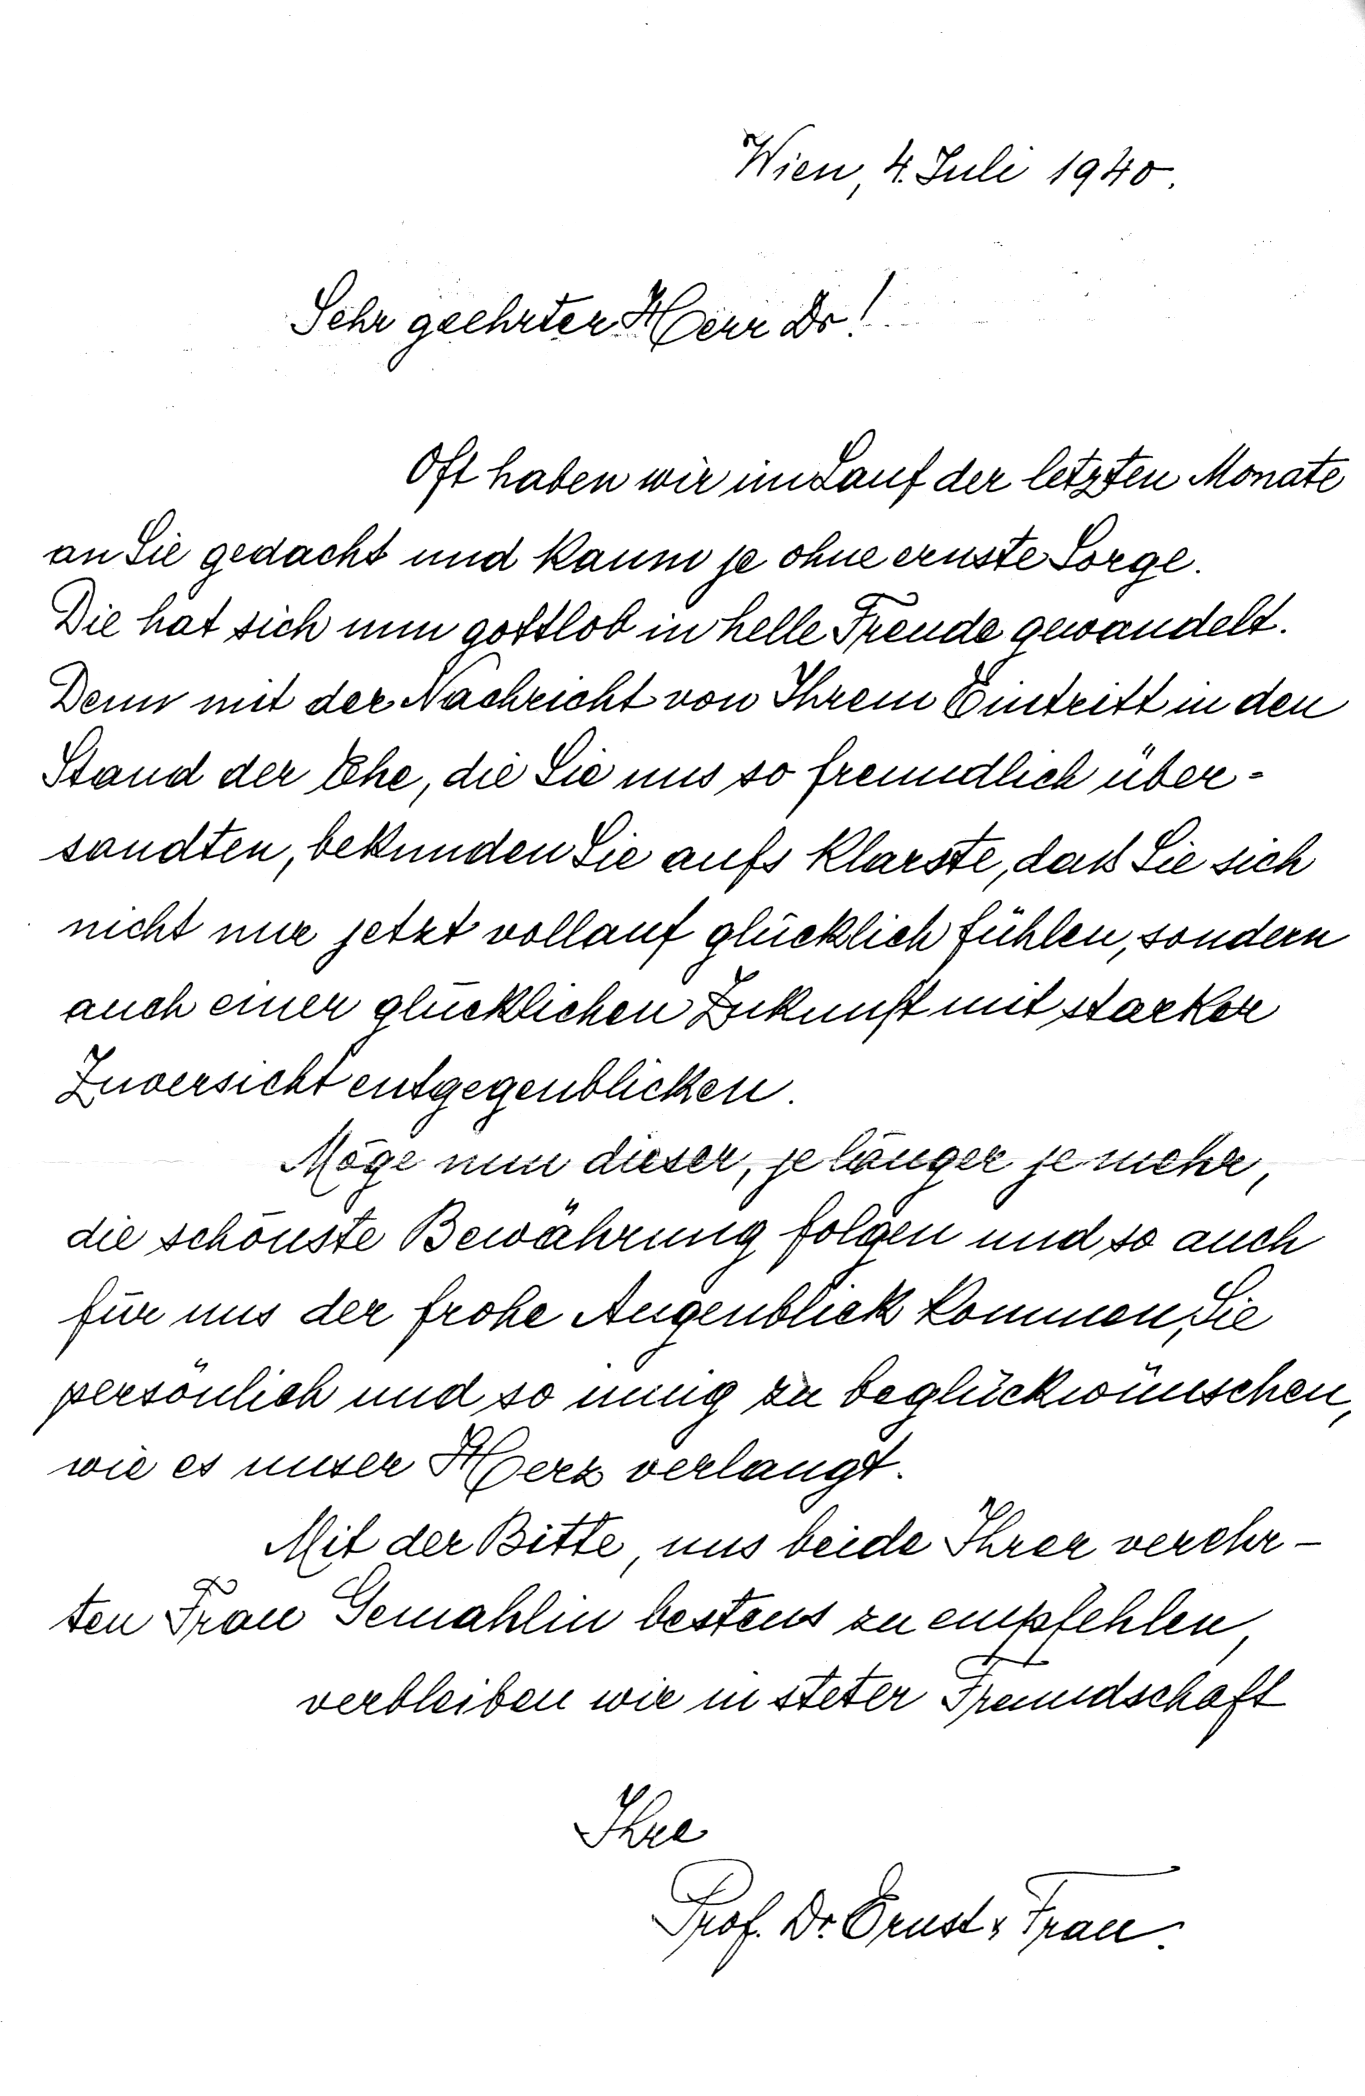 Wien, 4. Juli 1940.
Sehr geehrter Herr Dr!
Oft haben wir im Lauf der letzten Monate
an Sie gedacht und kaum je ohne ernste Sorge.
Die hat sich nun gottlob in helle Freude gewandelt.
Denn mit der Nachricht von Ihrem Eintritt in den
Stand der Ehe, die Sie uns so freundlich über-
sandten, bekunden Sie aufs Klarste, daß Sie sich
nicht nur jetzt vollauf glücklich fühlen, sondern
auch einer glücklichen Zukunft mit starker
Zuversicht entgegenblicken.
Möge nun dieser, je länger je mehr,
die schönste Bewährung folgen und so auch
für uns der frohe Augenblick kommen, Sie
persönlich und so innig zu beglückwünschen,
wie es unser Herz verlangt.
Mit der Bitte, uns beide Ihrer verehr-
ten Frau Gemahlin bestens zu empfehlen,
verbleiben wir in steter Freundschaft
Ihre
Prof. Dr. Ernst & Frau.